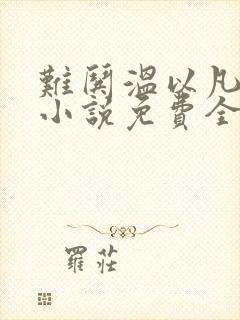 難鬨溫以凡
小說免費全
羅莊